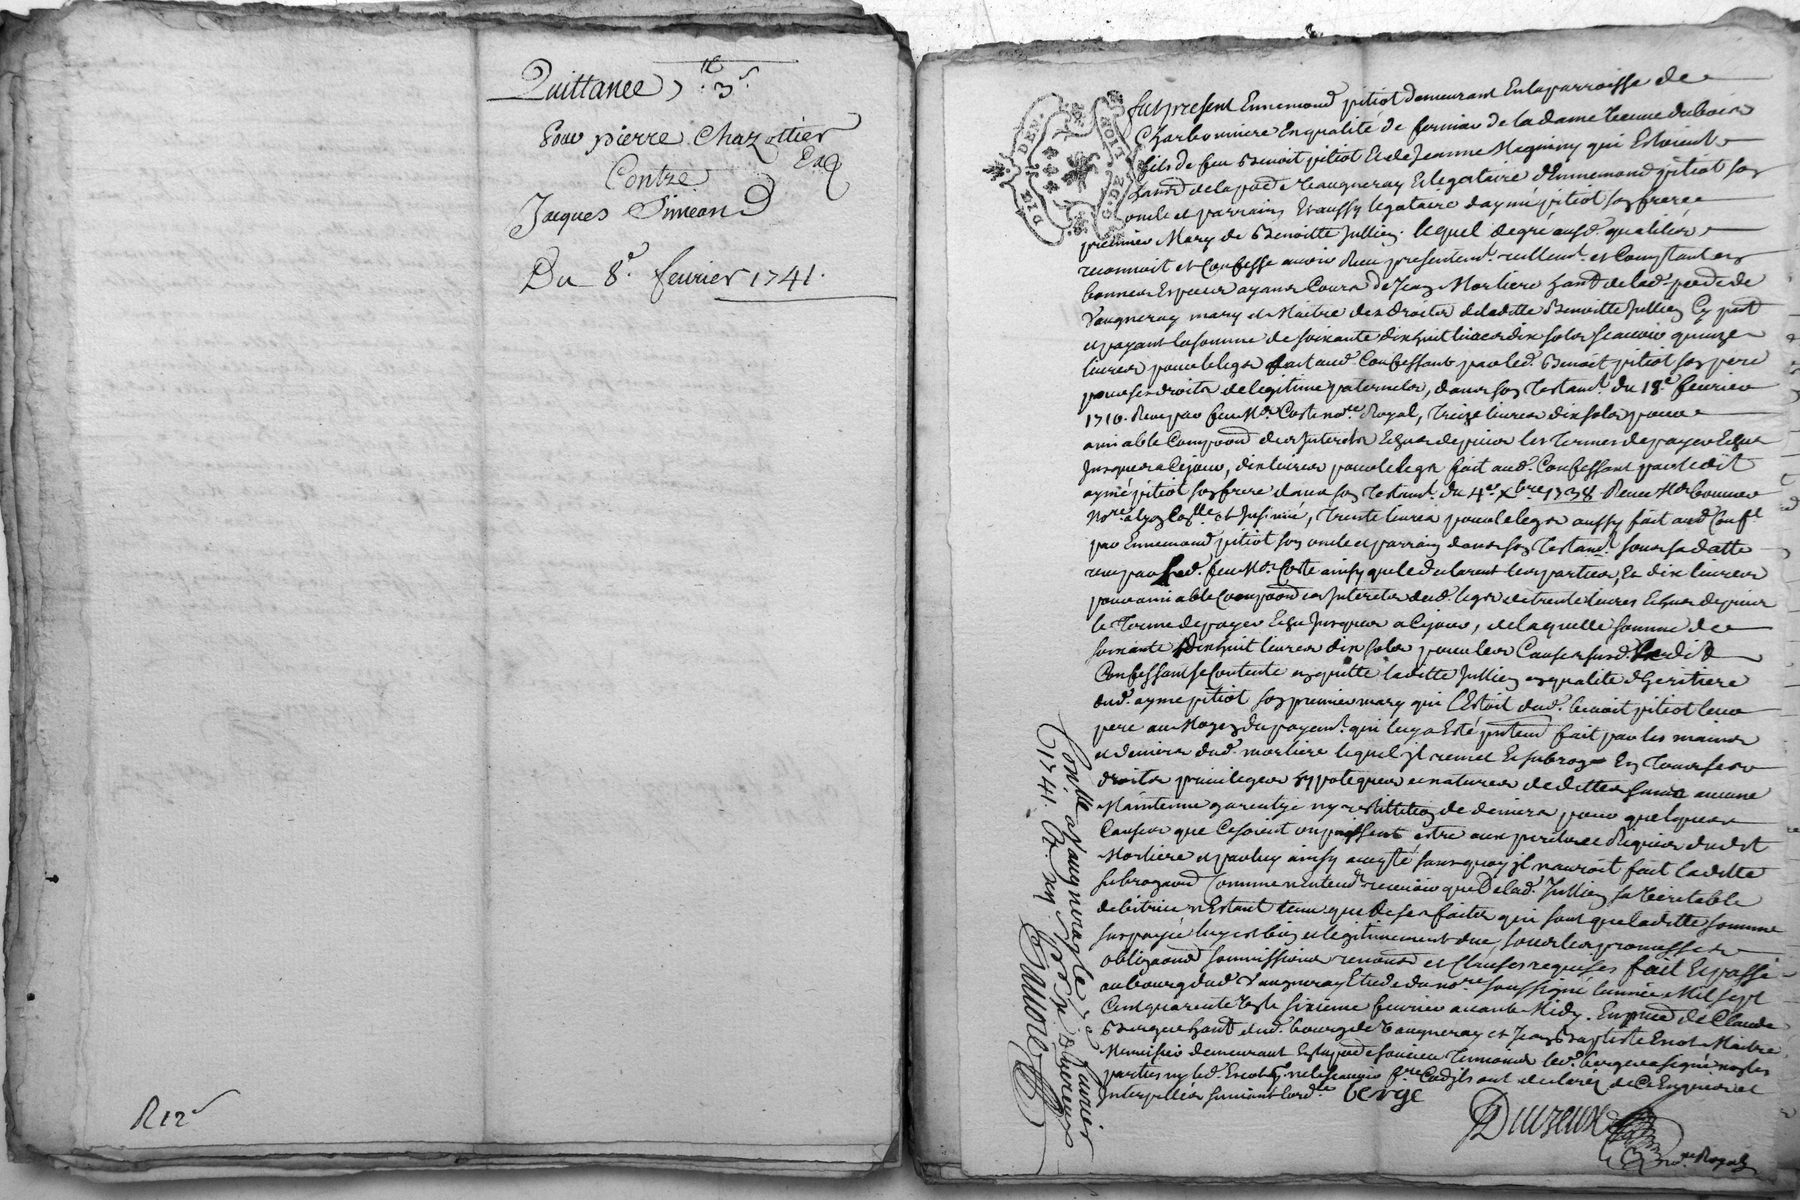 Quittance, 3.ˢ
Pour pierre Chazottier
Contre
Jacques Simeand
Du 8.ᵉ fevrier 1741.
R 12ˢ
GDE LION
DIX DEN.
fut present Ennemond pitiot demeurant En la parroisse de
Charbonniere En qualité de fermier de la dame
fils de feu Benoit pitiot Et de Jeanne Magniny qui Estoient
habᵈ de la pᵈ de Vaugneray Et legataire d'Ennemond pitiot son
oncle et parrain Et aussy legataire d'aymé pitiot son frere
premier Mary de Benoitte Jullien. lequel de gré ausd. qualités
reconnoit et Confesse avoir Reçu presentemᵗ. reellemᵗ. et Comptant en
bonnes Especes ayans Cours de Jean Morliere habᵈ de lad. pᵈᵉ de
Vaugneray mary et Maitre des droits de laditte Benoitte Jullien Cy pnᵗ
et payant la somme de soixante dix huit livres dix sols scavoir quinze
livres pour le legs fait aud. Confessant par led. Benoit pitiot son pere
pour ses droits de legitime paternels, dans son Testamᵗ. du 18.ᵉ fevrier
1710. Reçu par feu Mᵉ. Coste noʳᵉ Royal, Treize livres dix sols pour
amiable Compoon des Interets Echus depuis les Termes de payer Echus
Jusques a Ce jour, dix livres pour le legs fait aud. Confessant par ledit
aymé pitiot son frere dans son Testamᵗ. du 4.ᵉ Xbre 1738 Reçu Mᵉ bonnes
Noʳᵉ et Insinué, Trente livres pour le legs aussy fait aud. Confᵗ
par Ennemond pitiot son oncle et parrain dans son Testamᵗ. sous sa datte
reçu par led. feu Mᵉ. Coste ainsy que le declarent les parties, Et dix livres
pour amiable Compoon des Interets dud. legs de trente livres Echus depuis
le Terme de payer Echu Jusques a Ce jour, de laquelle somme de
soixante Dix huit livres dix sols pour les Causes susd. Ledit
Confessant se Contente en quitte laditte Jullien en qualité d'heritiere
dud. aymé pitiot son premier mary qui l'Estoit dud. benoit pitiot leur
pere au Moyen du payemᵗ. qui luy a Esté pntemᵗ fait par les mains
et deniers dud. morliere lequel il remet Et subroge En Tous ses
droits privileges hypoteques et natures de dettes sans aucune
Maintenue garentie ny restitution de deniers pour quelques
Causes que Ce soient ou puissent estre aux perils et Risques dudit
Morliere et par luy ainsy accepté sans quoy il n'auroit fait laditte
subrogaon Comme n'Entendᵗ. recevoir que De lad. Jullien sa Veritable
debitrice n'Estant tenu que de ses faits qui sont que laditte somme
sus payée luy est bien et legitimement due, sous les promesses
obligaons soumissions renonᵒⁿˢ et Clauses requises fait Et passé
au bourg dud. Vaugneray Etude du noʳᵉ soussigné l'année Mil sept
Cent quarante Un le sixieme fevrier avant Midy. En pnce de Claude
Berge habᵈ dud. bourg de Vaugneray et Jean Baptiste Maitre
Menuisier demeurant temoins led. berge a signé non les
parties ny led. pour ne le scavoir faire Ce qu'ils ont declaré de Ce Enquis et
Interpellés suivant l'ord.ᶜᵉ berge
Duizeux
noʳᵉ Royal
Con.ˡˡᵉ a Vaugneray le fevrier
1741. R. douze sols